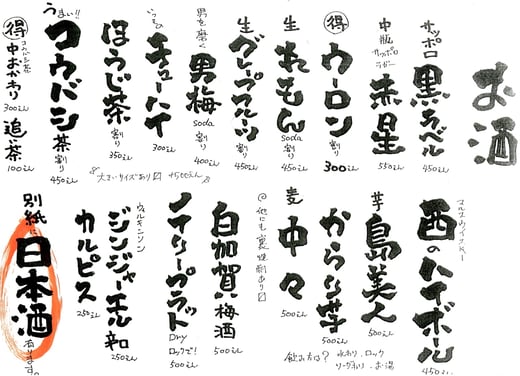 お酒
サッポロ
黒ラベル
450えん
中瓶
サッポロ
ラガー
赤星
550えん
得
ウーロン
割り
300えん
生
れもん
soda
割り
450えん
生
グレープフルーツ
割り
450えん
男を磨く
男梅
soda
割り
400えん
チューハイ
300えん
ほうじ茶
割り
350えん
大きいサイズあり〼
うまい!!
コウバシ茶
割り
450えん
得
コウバシ茶
中おかわり
300えん
追い茶
100えん
西のハイボール
450えん
芋
島美人
500えん
からり芋
500えん
飲み方は?
水わり、ロック
ソーダわり、お湯
麦
中々
500えん
白加賀
梅酒
500えん
ノイリープラット
Dry
ロックで!
500えん
ウィルキンソン
ジンジャーエール
辛
250えん
カルピス
250えん
別紙に
日本酒
有ります。